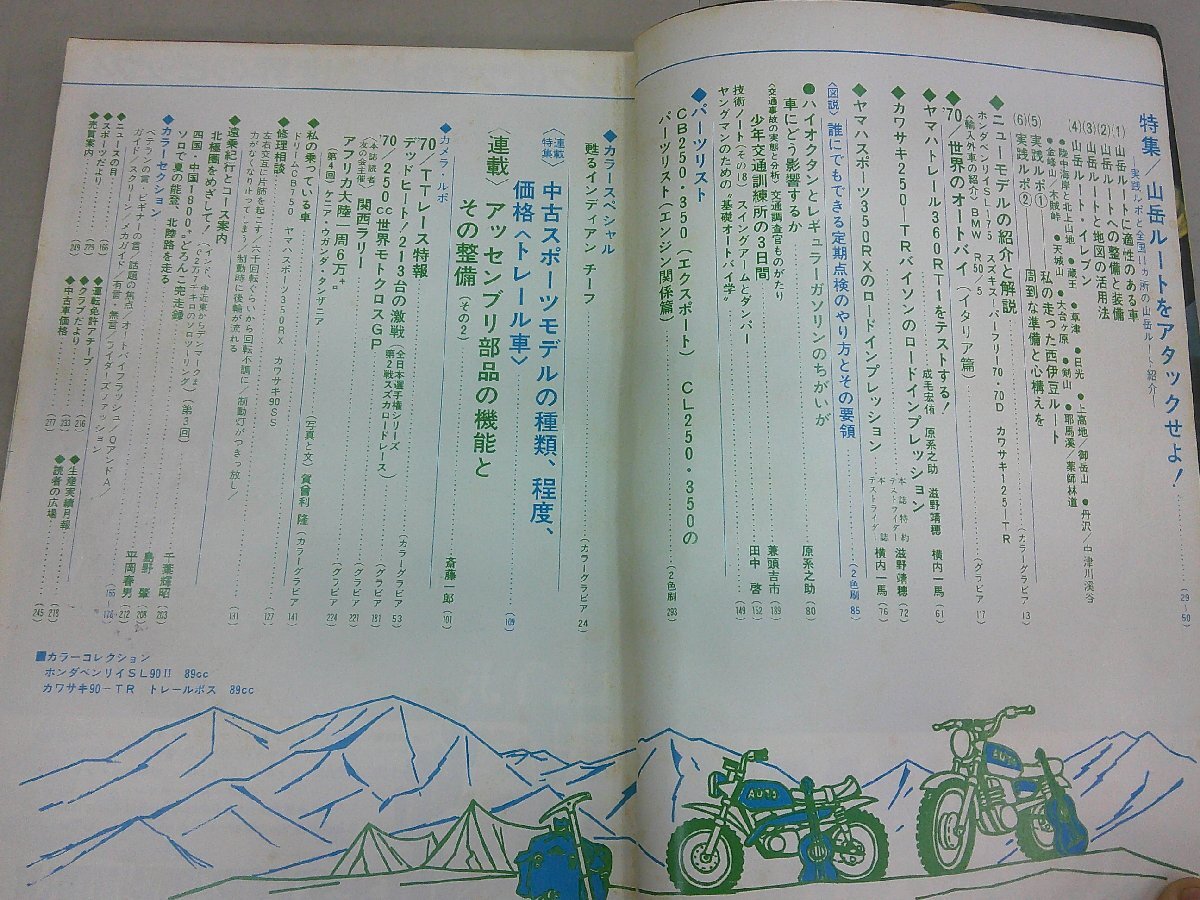 特集/山岳ルートをアタックせよ!
―実践ルポと全国11カ所の山岳ルート紹介―
(29〜50)
(1) 山岳ルートに適性のある車
(2) 山岳ルートへの整備と装備
(3) 山岳ルートと地図の活用法
(4) 山岳ルート・イレブン
●陸中海岸と北上山地 ●蔵王 ●草津 ●日光 ●上高地/御岳山 ●丹沢/中津川渓谷
●金峰山/木賊峠 ●天城山 ●大台ヶ原 ●剣山 ●耶馬溪/薬師林道
(5) 実践ルポ① 私の走った西伊豆ルート
(6) 実践ルポ② 周到な準備と心構えを
◆ニューモデルの紹介と解説 (カラーグラビア) 13
ホンダベンリイSL175 スズキス
パーフリー70・70D カワサキ125-TR
〈輸入外車の紹介〉BMW R50/5 17
◆'70/世界のオートバイ(イタリア篇)
◆ヤマハトレール360RT-1をテストする! 成毛宏侑 原系之助 滋野靖穂 横内一馬 (61)
◆カワサキ250-TRバイソンのロードインプレッション 本誌特約テストライダー 滋野靖穂 (72)
◆ヤマハスポーツ350RXのロードインプレッション 本誌テストライダー 横内一馬 (76)
〈図説〉誰にでもできる定期点検のやり方とその要領 (2色刷) 85
●ハイオクタンとレギュラーガソリンのちがいが
車にどう影響するか 原系之助 80
〈交通事故の実態と分析〉交通調査官ものがたり 兼頭吉市 (189)
少年交通訓練所の3日間 田中 啓 (152)
技術ノート(その18) スイングアームとダンパー (149)
ヤングマンのための〝基礎オートバイ学〟
◆パーツリスト
CB250・350(エクスポート) CL250・350の
パーツリスト(エンジン関係篇) (2色刷) 293
◆カラースペシャル
甦るインディアン チーフ (カラーグラビア) 24
〈連載特集〉中古スポーツモデルの種類、程度、
価格〈トレール車〉 109
〈連載〉アッセンブリ部品の機能と
その整備(その2) 斎藤一郎 (101)
◆カメラ・ルポ
'70/TTレース特報 (カラーグラビア) 53
デッドヒート!213台の激戦(全日本選手権シリーズ第2戦スズカロードレース) (グラビア) 181
'70/250cc世界モトクロスGP (グラビア) 221
(本誌読者友の会主催) 関西ラリー (グラビア) 224
アフリカ大陸一周6万キロ
(第4回) ケニア・ウガンダ・タンザニア (写真と文) 賀曽利 隆 (カラーグラビア) 141
◆私の乗っている車
ドリームCB750 ヤマハスポーツ350RX カワサキ90SS (127)
◆修理相談
左右交互に片肺を起こす/六千回転ぐらいから回転不調に/制動灯がつきっ放し/
力がなくなり止ってしまう/制動時に後輪が流れる (131)
◆遠乗紀行とコース案内
北極圏をめざして!(インド、中近東からデンマークまで2万7千キロのソロツーリング) (第3回) 千葉輝昭 (203)
四国・中国1800キロどろんこ完走録 島野 肇 208
ソロで夏の能登、北陸路を走る 平岡春男 (212)
◆カラーセクション (155〜170)
ベテランの言、ビギナーの言/話題の焦点/オートバイフラッシュ/QアンドA/
ガイド/スクリーン/メカガイド/有言・無言/ライダーズファッション
◆ニュースの目 166
◆スポーツだより (225)
◆売買案内 (249)
◆運転免許アチーブ 216
◆クラブだより (233)
◆中古車価格 (277)
◆生産実績月報 218
◆読者の広場 (245)
■カラーコレクション
ホンダベンリイSL90II 89cc
カワサキ90-TR トレールボス 89cc
AUTO
AUTO